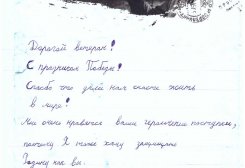 Дорогой ветеран!
С праздником Победы!
Спасибо что дали нам счастье жить
в мире!
Мне очень нравится ваши героические поступки,
поэтому Я тоже хочу защищать
Родину как вы.